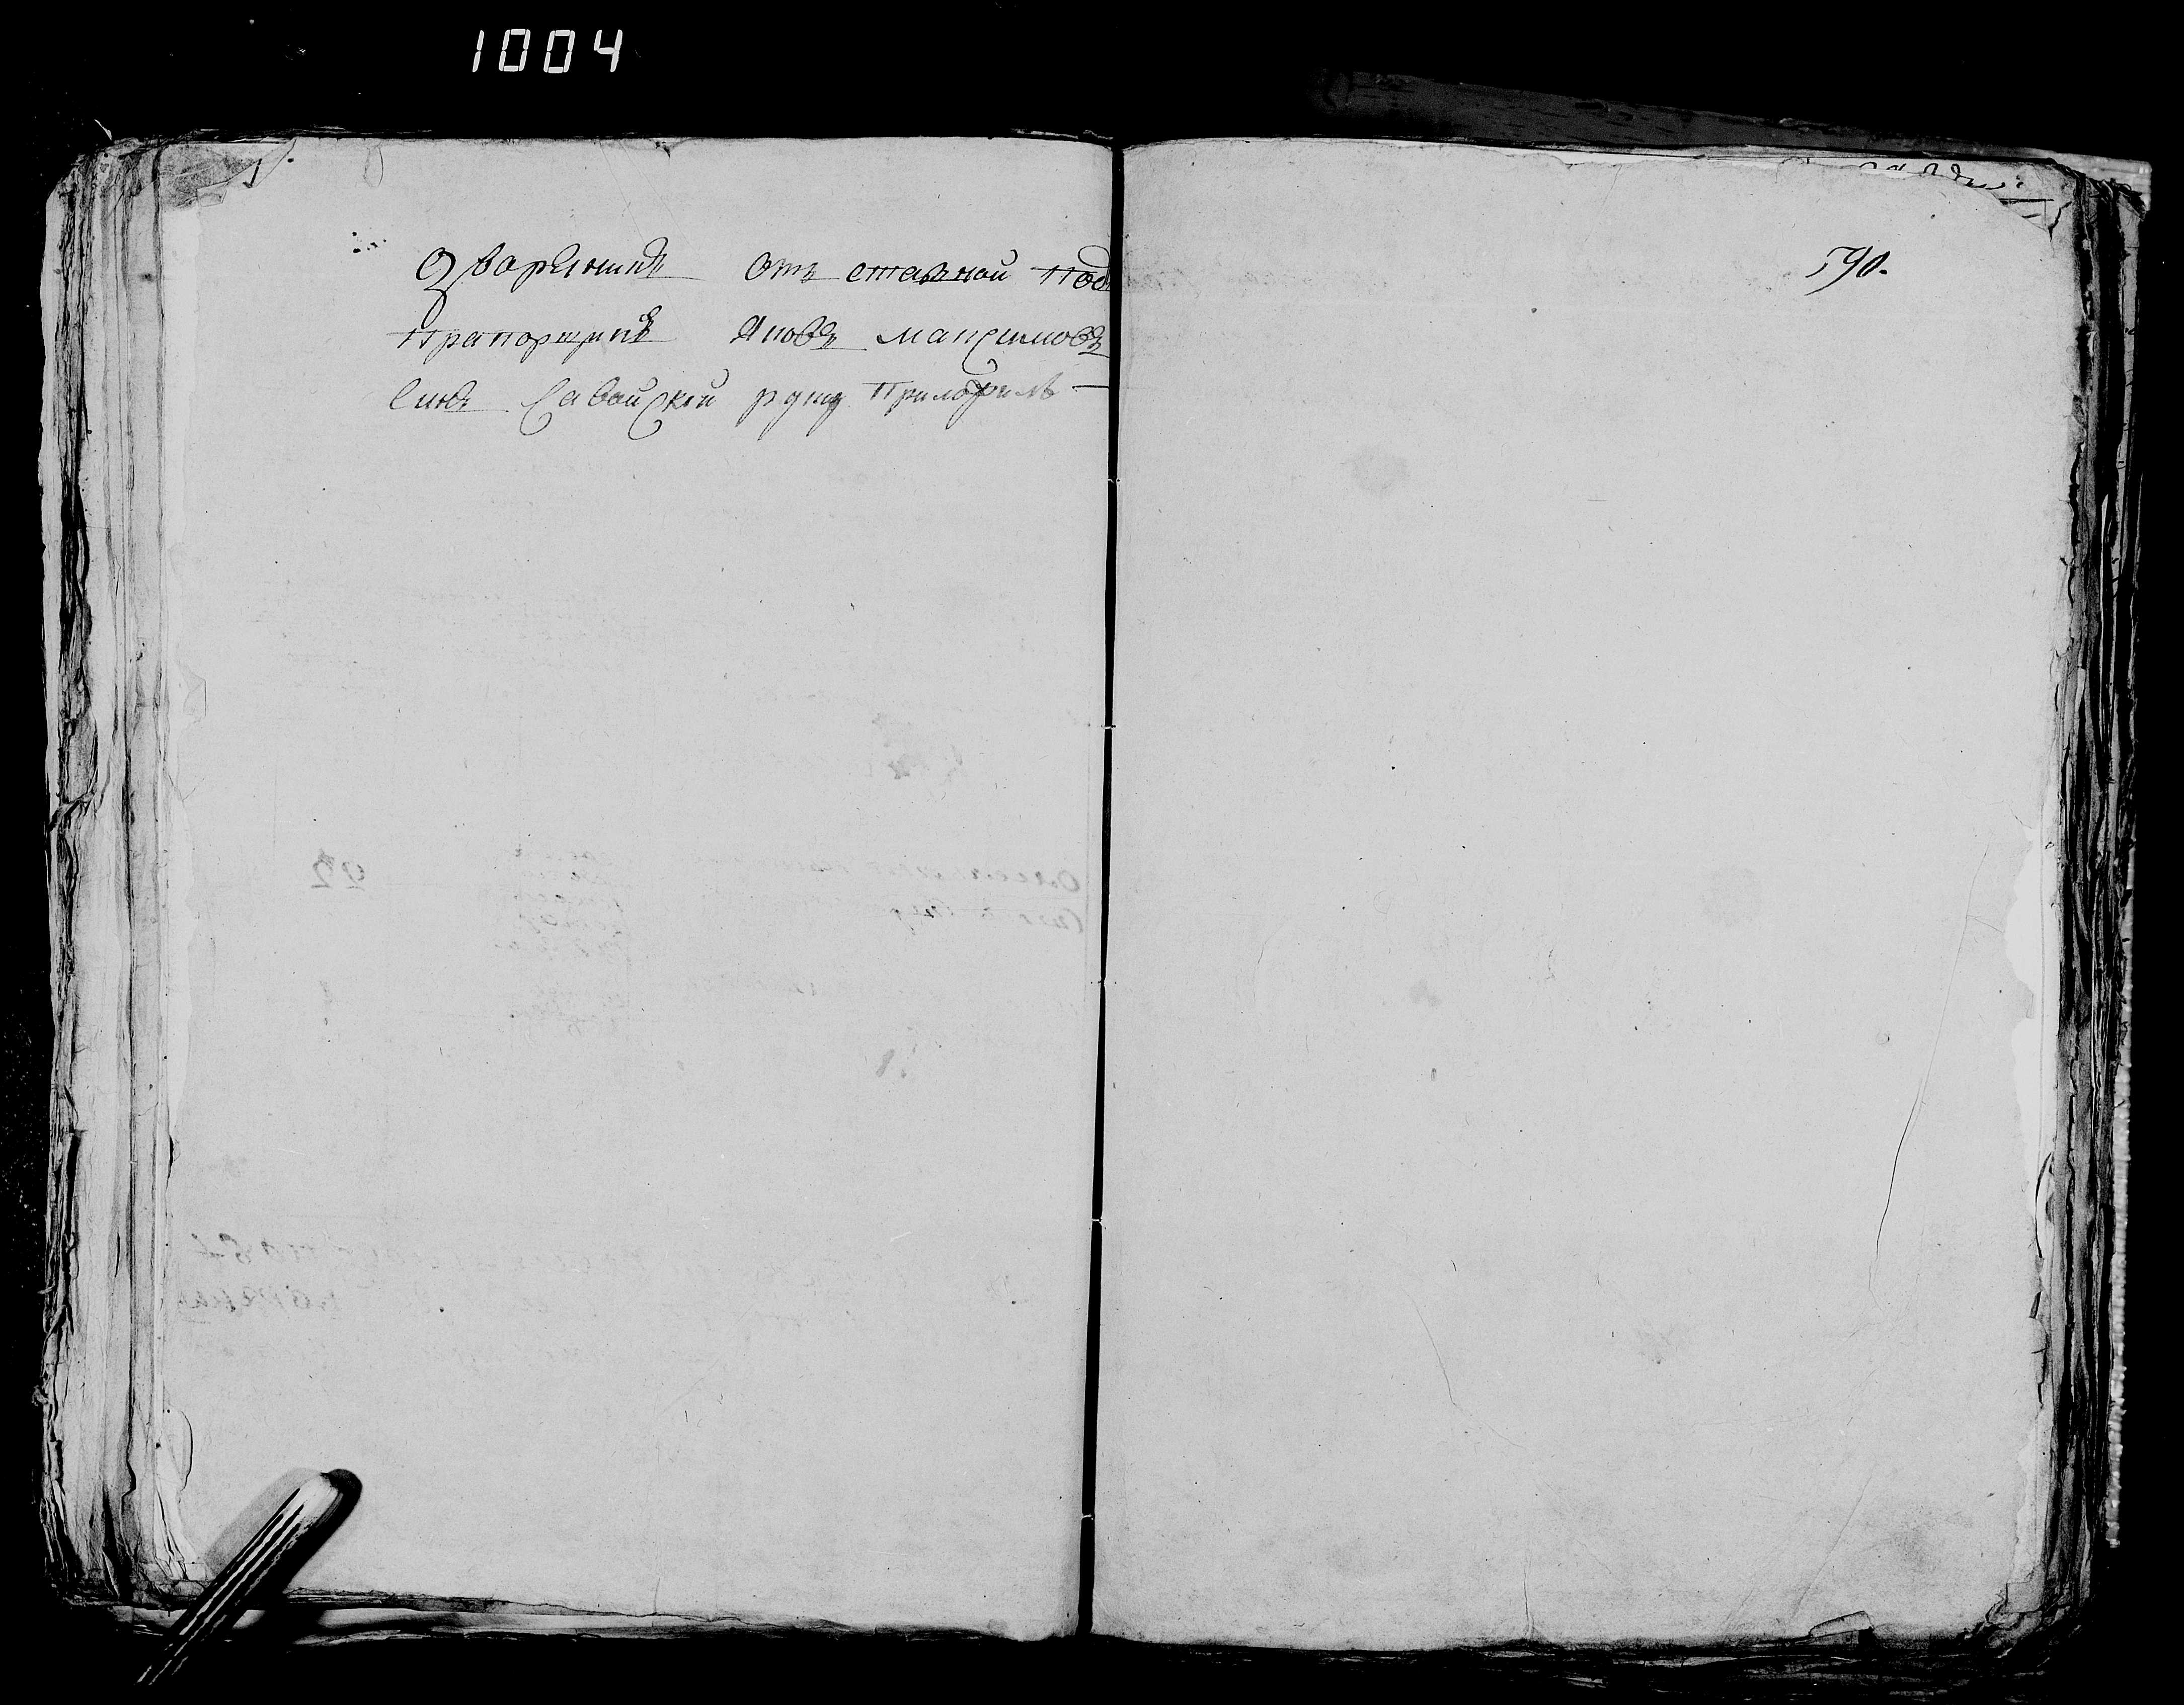 1004
Дворенинъ отъ ставной под
прапорщикъ Яковъ максимовъ
синъ Савойскои руку приложилъ
590.